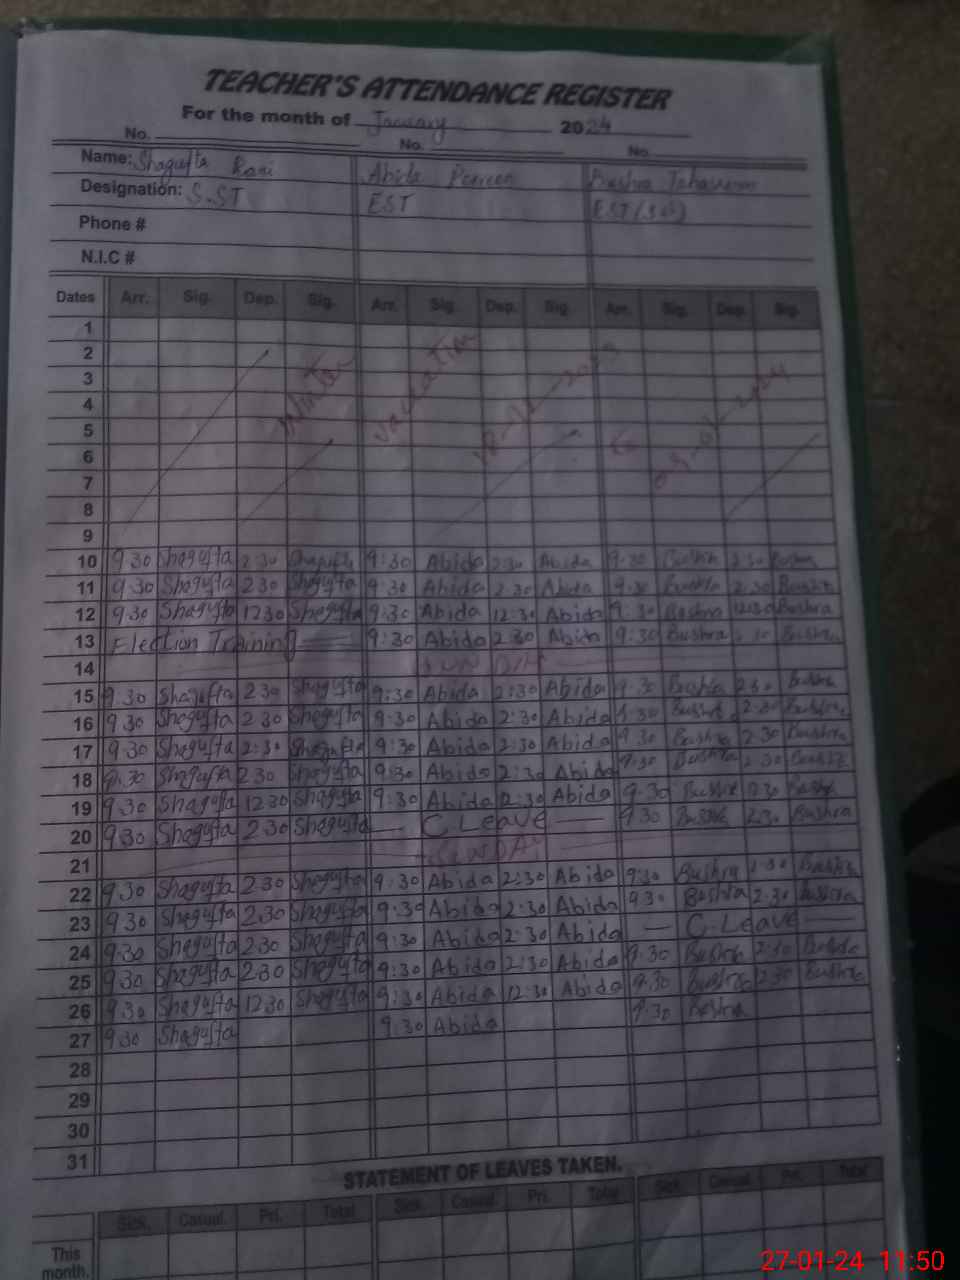 TEACHER'S ATTENDANCE REGISTER
For the month of January 2024
No. No. No.
Name: Shagufta Rani Abida Perveen Bushra
Designation: S.ST EST EST
Phone #
N.I.C #
Dates Arr. Sig. Dep. Sig. Arr. Sig. Dep. Sig. Arr. Sig. Dep. Sig.
1
2
3
4
5
6
7
8
9
Winter Vacation to
10 9:30 Shagufta 2:30 Shagufta 9:30 Abida 2:30 Abida 9:30 Bushra 2:30 Bushra
11 9:30 Shagufta 2:30 Shagufta 9:30 Abida 2:30 Abida 9:30 Bushra 2:30 Bushra
12 9:30 Shagufta 12:30 Shagufta 9:30 Abida 12:30 Abida 9:30 Bushra 12:30 Bushra
13 Election Training 9:30 Abida 2:30 Abida 9:30 Bushra Bushra
14 SUNDAY
15 9:30 Shagufta 2:30 Shagufta 9:30 Abida 2:30 Abida 9:30 Bushra 2:30 Bushra
16 9:30 Shagufta 2:30 Shagufta 9:30 Abida 2:30 Abida 9:30 Bushra 2:30 Bushra
17 9:30 Shagufta 2:30 Shagufta 9:30 Abida 2:30 Abida 9:30 Bushra 2:30 Bushra
18 9:30 Shagufta 2:30 Shagufta 9:30 Abida 2:30 Abida 9:30 Bushra 2:30 Bushra
19 9:30 Shagufta 12:30 Shagufta 9:30 Abida 12:30 Abida 9:30 Bushra 12:30 Bushra
20 9:30 Shagufta 2:30 Shagufta C.Leave 9:30 Bushra 2:30 Bushra
21 SUNDAY
22 9:30 Shagufta 2:30 Shagufta 9:30 Abida 2:30 Abida 9:30 Bushra 2:30 Bushra
23 9:30 Shagufta 2:30 Shagufta 9:30 Abida 2:30 Abida 9:30 Bushra 2:30 Bushra
24 9:30 Shagufta 2:30 Shagufta 9:30 Abida 2:30 Abida C.Leave
25 9:30 Shagufta 2:30 Shagufta 9:30 Abida 2:30 Abida 9:30 Bushra 2:30 Bushra
26 9:30 Shagufta 12:30 Shagufta 9:30 Abida 12:30 Abida 9:30 Bushra Bushra
27 9:30 Shagufta 9:30 Abida 9:30 Bushra
28
29
30
31
STATEMENT OF LEAVES TAKEN.
Sick. Casual. Pri. Total Sick. Casual. Pri. Total Sick. Casual. Pri. Total
This month.
27-01-24 11:50